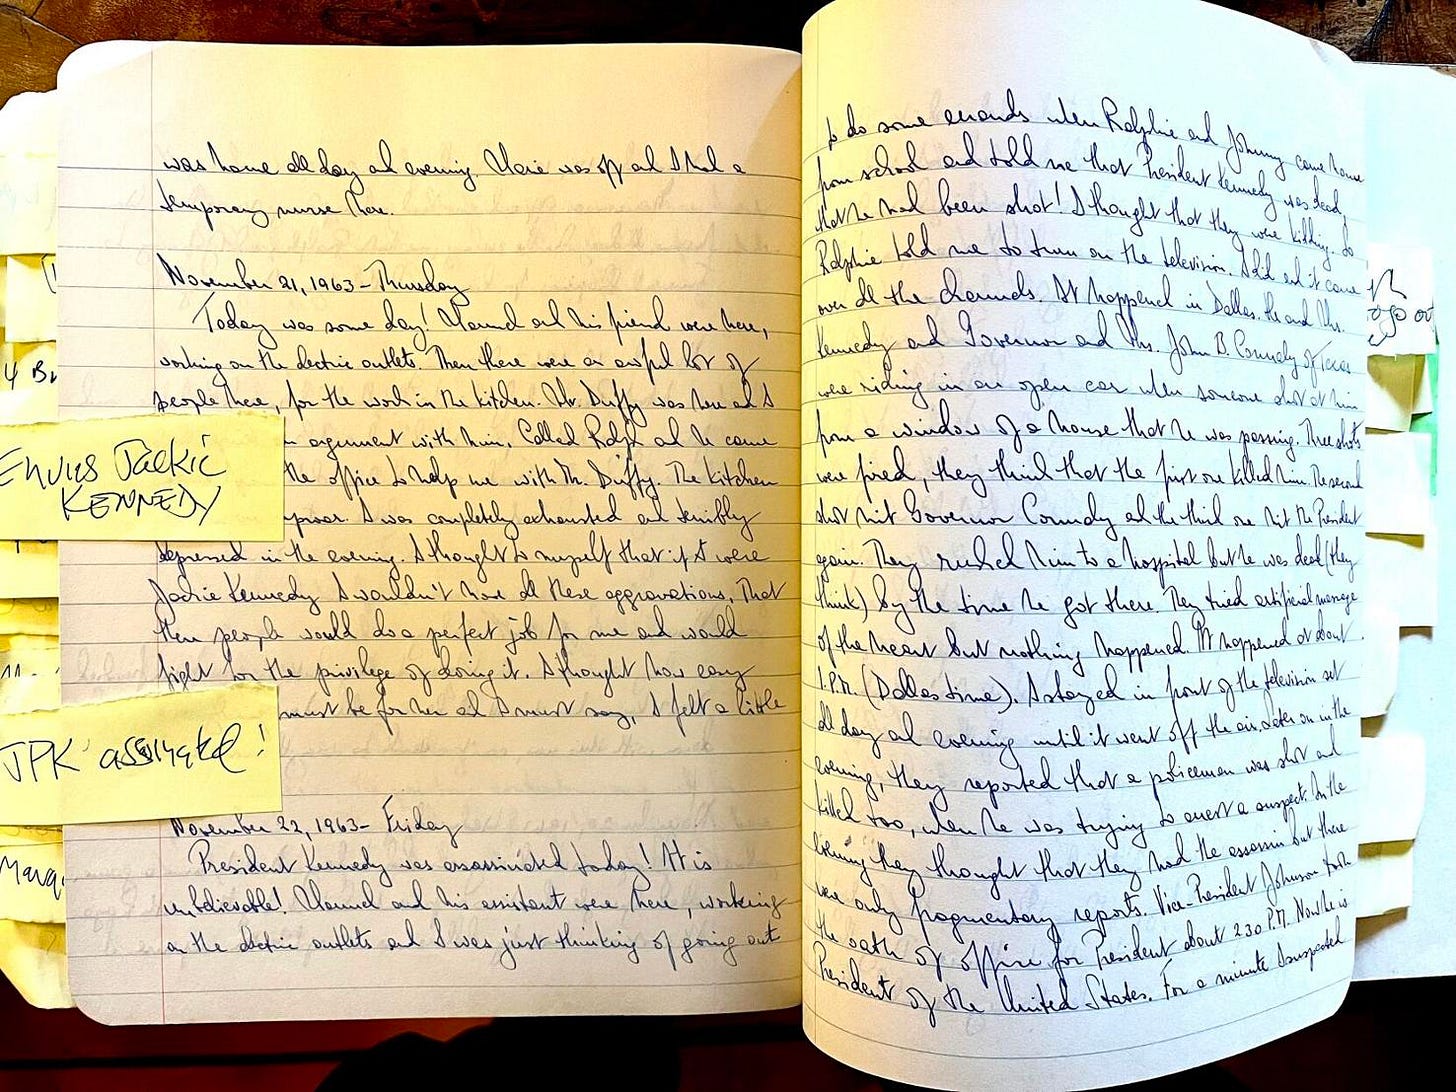 was home all day and evening. Marie was off and I had a
temporary nurse here.
November 21, 1963 - Thursday
Today was some day! and his friend were here,
working on the electric outlets. Then there were an awful lot of
people here, for the work in the kitchen. Mr. Duffy was here and I
argument with him. Called Ralph and he came
the office to help me with Mr. Duffy. The kitchen
I was completely exhausted and terribly
depressed in the evening. I thought to myself that if I were
Jackie Kennedy I wouldn't have all these aggravations. That
then people would do a perfect job for me and would
fight for the privilege of doing it. I thought how easy
must be for her and I must say, I felt a little
November 22, 1963 - Friday
President Kennedy was assassinated today! It is
unbelievable! and his assistant were here, working
on the electric outlets and I was just thinking of going out
Envies Jackie
KENNEDY
JPK assinated!
4 B
Marq
to do some errands when Ralphie and Johnny came home
from school and told me that President Kennedy was dead,
that he had been shot! I thought that they were kidding. So
Ralphie told me to turn on the television. I did and it came
over all the channels. It happened in Dallas. He and Mrs.
Kennedy and Governor and Mrs. John B. Connally of Texas
were riding in an open car when someone shot at him
from a window of a house that he was passing. Three shots
were fired, they think that the first one killed him. The second
shot hit Governor Connally and the third one hit the President
again. They rushed him to a hospital but he was dead (they
think) by the time he got there. They tried artificial massage
of the heart but nothing happened. It happened at about
1.P.M. (Dallas time). I stayed in front of the television set
all day and evening until it went off the air. Later on in the
evening, they reported that a policeman was shot and
killed too, when he was trying to arrest a suspect. In the
evening they thought that they had the assassin but there
were only fragmentary reports. Vice-President Johnson took
the oath of office for President about 2 30 P.M. Now he is
President of the United States. For a minute I suspected
to go out